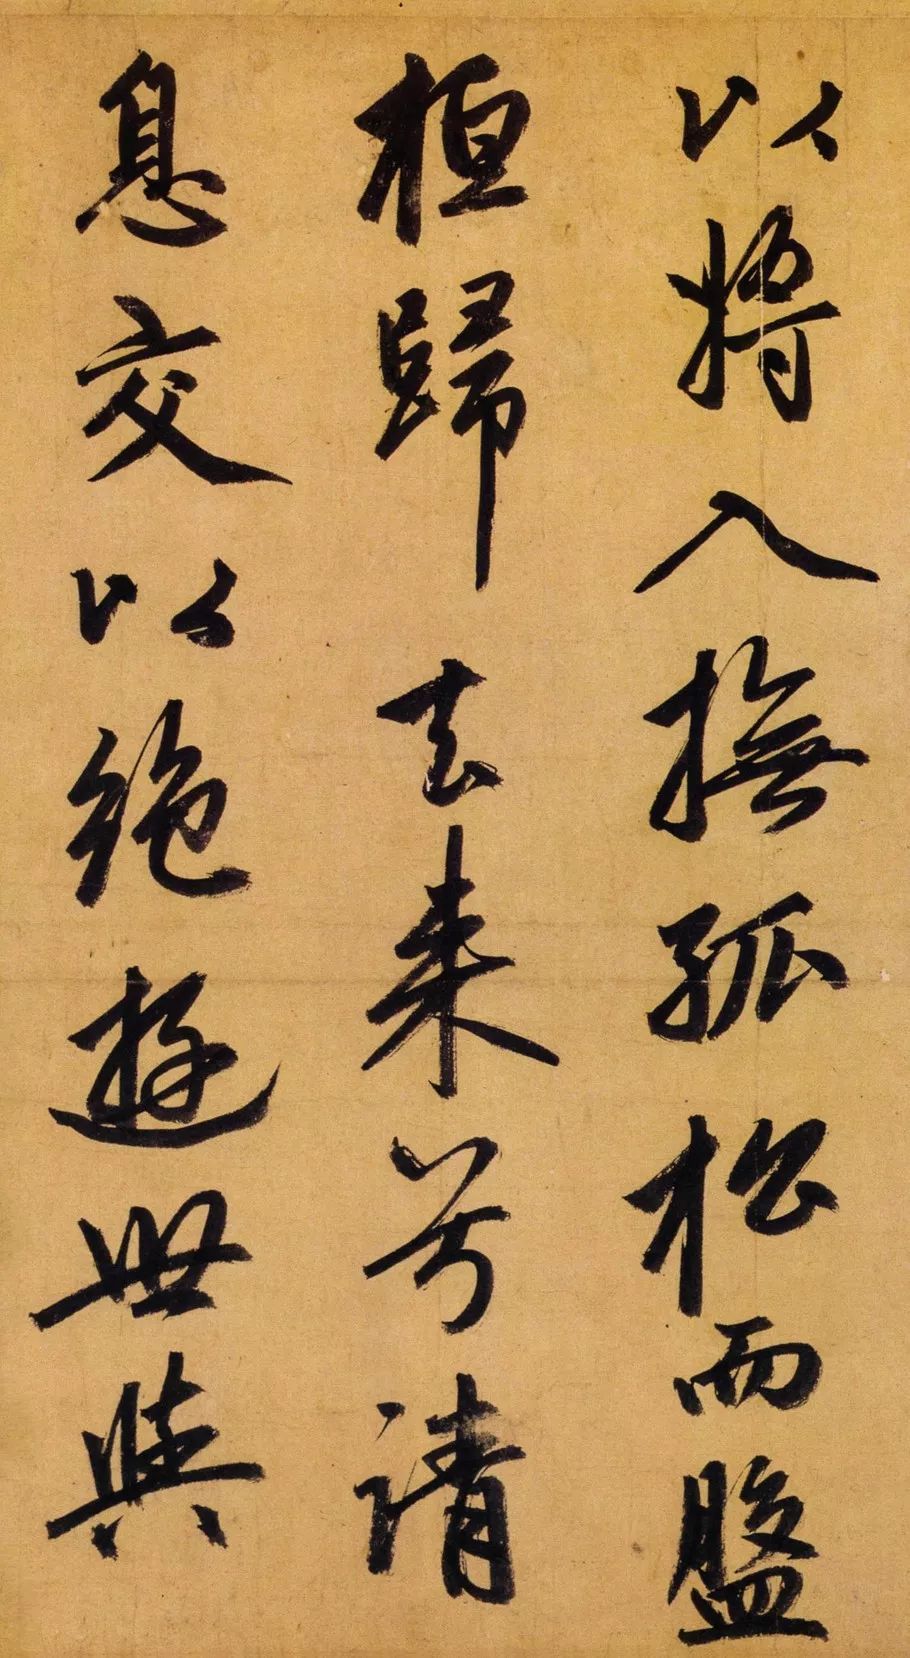 以將入撫孤松而盤
桓歸去來兮請
息交以絕遊世與